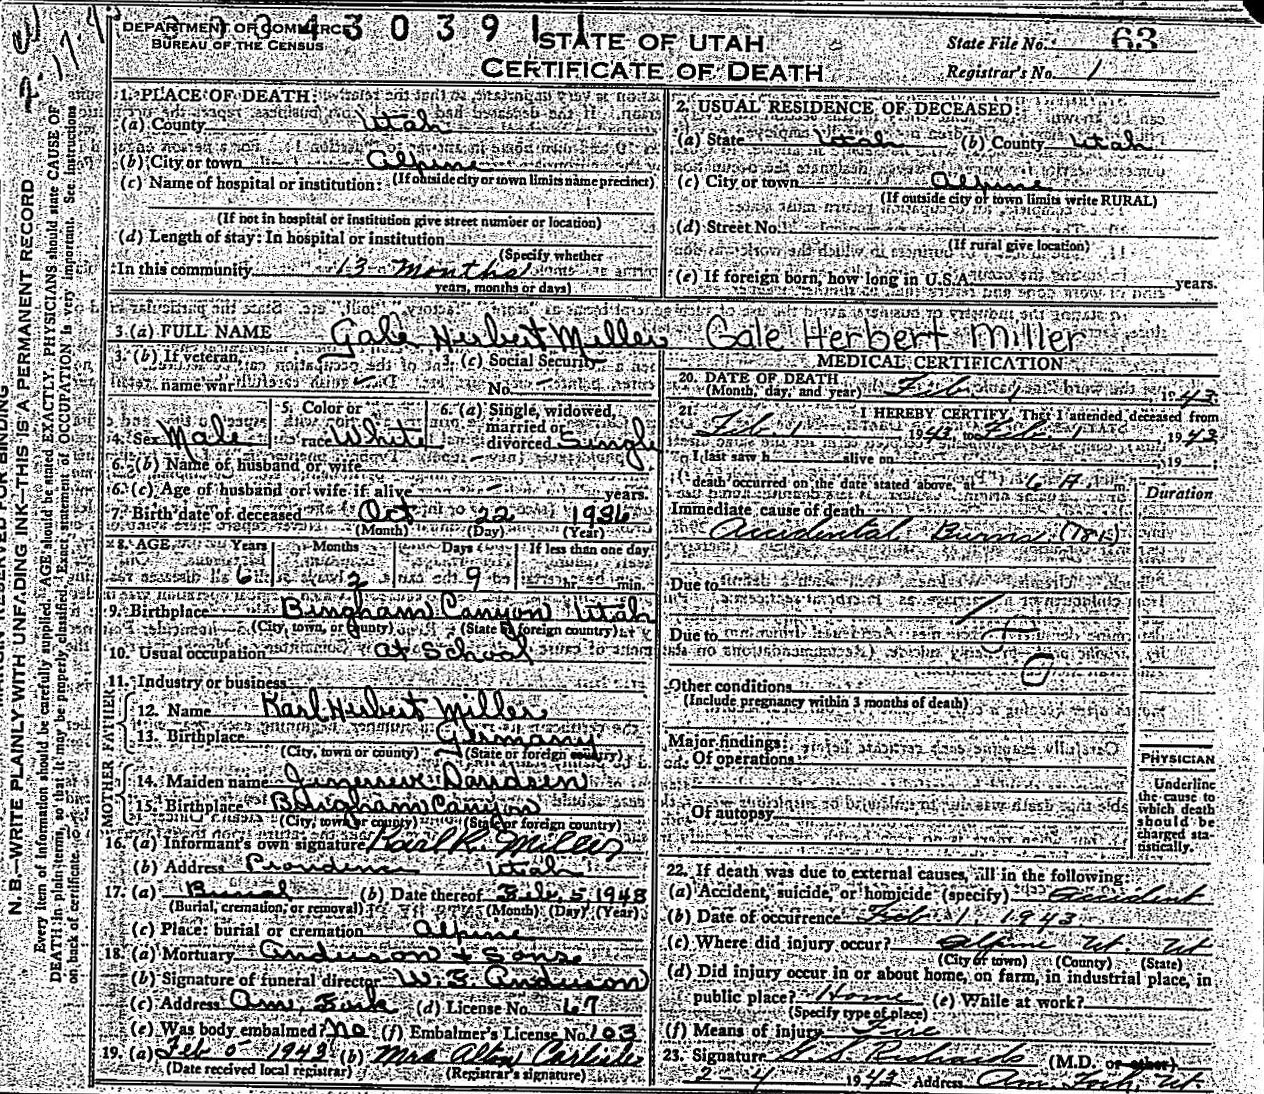 DEPARTMENT OF COMMERCE
BUREAU OF THE CENSUS
4 3 0 3 9 1 1
STATE OF UTAH
CERTIFICATE OF DEATH
State File No. 63
Registrar's No. 1
MARGIN RESERVED FOR BINDING
N. B.—WRITE PLAINLY WITH UNFADING INK—THIS IS A PERMANENT RECORD
Every item of information should be carefully supplied. AGE should be stated EXACTLY. PHYSICIANS should state CAUSE OF
DEATH in plain terms, so that it may be properly classified. Exact statement of OCCUPATION is very important. See instructions
on back of certificate.
1. PLACE OF DEATH:
(a) County Utah
(b) City or town Alpine
(If outside city or town limits name precinct)
(c) Name of hospital or institution:
(If not in hospital or institution give street number or location)
(d) Length of stay: In hospital or institution
(Specify whether
In this community 13 Months
years, months or days)
2. USUAL RESIDENCE OF DECEASED:
(a) State Utah (b) County Utah
(c) City or town Alpine
(If outside city or town limits write RURAL)
(d) Street No.
(If rural give location)
(e) If foreign born, how long in U.S.A. years.
3. (a) FULL NAME Gale Herbert Miller Gale Herbert Miller
3. (b) If veteran, name war
3. (c) Social Security No.
4. Sex Male
5. Color or race White
6. (a) Single, widowed, married or divorced Single
6. (b) Name of husband or wife
6. (c) Age of husband or wife if alive years.
7. Birth date of deceased Oct 22 1936
(Month) (Day) (Year)
8. AGE Years Months Days If less than one day
6 2 9 hr. min.
9. Birthplace Bingham Canyon Utah
(City, town, or county) (State or foreign country)
10. Usual occupation at School
11. Industry or business
FATHER
12. Name Karl Herbert Miller
13. Birthplace Germany
(City, town or county) (State or foreign country)
MOTHER
14. Maiden name
15. Birthplace Bingham Canyon
(City, town or county) (State or foreign country)
16. (a) Informant's own signature Karl R. Miller
(b) Address Utah
17. (a) Burial (b) Date thereof Feb. 5, 1943
(Burial, cremation, or removal) (Month) (Day) (Year)
(c) Place: burial or cremation Alpine
18. (a) Mortuary Anderson & Sons
(b) Signature of funeral director W. E. Anderson
(c) Address Am. Fork (d) License No. 67
(e) Was body embalmed? No (f) Embalmer's License No. 103
19. (a) Feb 5 1943 (b) Mrs Carlisle
(Date received local registrar) (Registrar's signature)
MEDICAL CERTIFICATION
20. DATE OF DEATH
(Month, day, and year) Feb. 1 1943
21. I HEREBY CERTIFY, That I attended deceased from
Feb. 1 1943 to Feb. 1 1943
I last saw h alive on , 19
death occurred on the date stated above, at 6 A. m
Duration
Immediate cause of death
Accidental Burns (181)
Due to
Due to
Other conditions
(Include pregnancy within 3 months of death)
Major findings:
Of operations
Of autopsy
PHYSICIAN
Underline
the cause to
which death
should be
charged sta-
tistically.
22. If death was due to external causes, fill in the following:
(a) Accident, suicide, or homicide (specify) accident
(b) Date of occurrence Feb 1. 1943
(c) Where did injury occur? Alpine Ut. Ut
(City or town) (County) (State)
(d) Did injury occur in or about home, on farm, in industrial place, in
public place? Home (e) While at work?
(Specify type of place)
(f) Means of injury Fire
23. Signature Richards (M.D. or other)
2-4 1943 Address Am. Fork, Ut